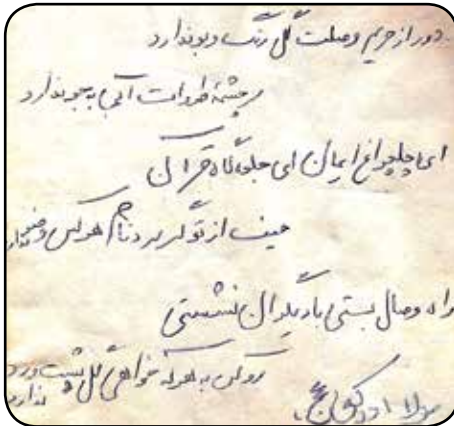 دور از حریم وصلت گل رنگ و بو ندارد
سرچشمهٔ طراوت آبی به جو ندارد
ای چلچراغ ایمان ای جلوه‌گاه قرآن
حیف از تو گر برد نام هر کس وضو ندارد
راه وصال بستی با دیگران نشستی
رو کن به هر که خواهی گل پشت و رو ندارد
مولا